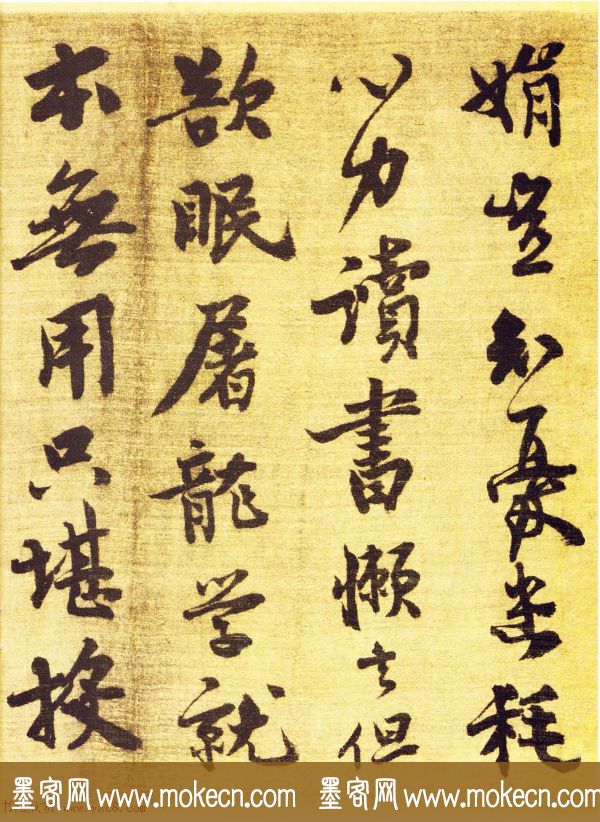 娟豈知憂患耗
心力讀書懶去但
欲眠屠龍学就
本無用只堪投
墨客网 www.mokecn.com 墨客网 www.mokecn.com